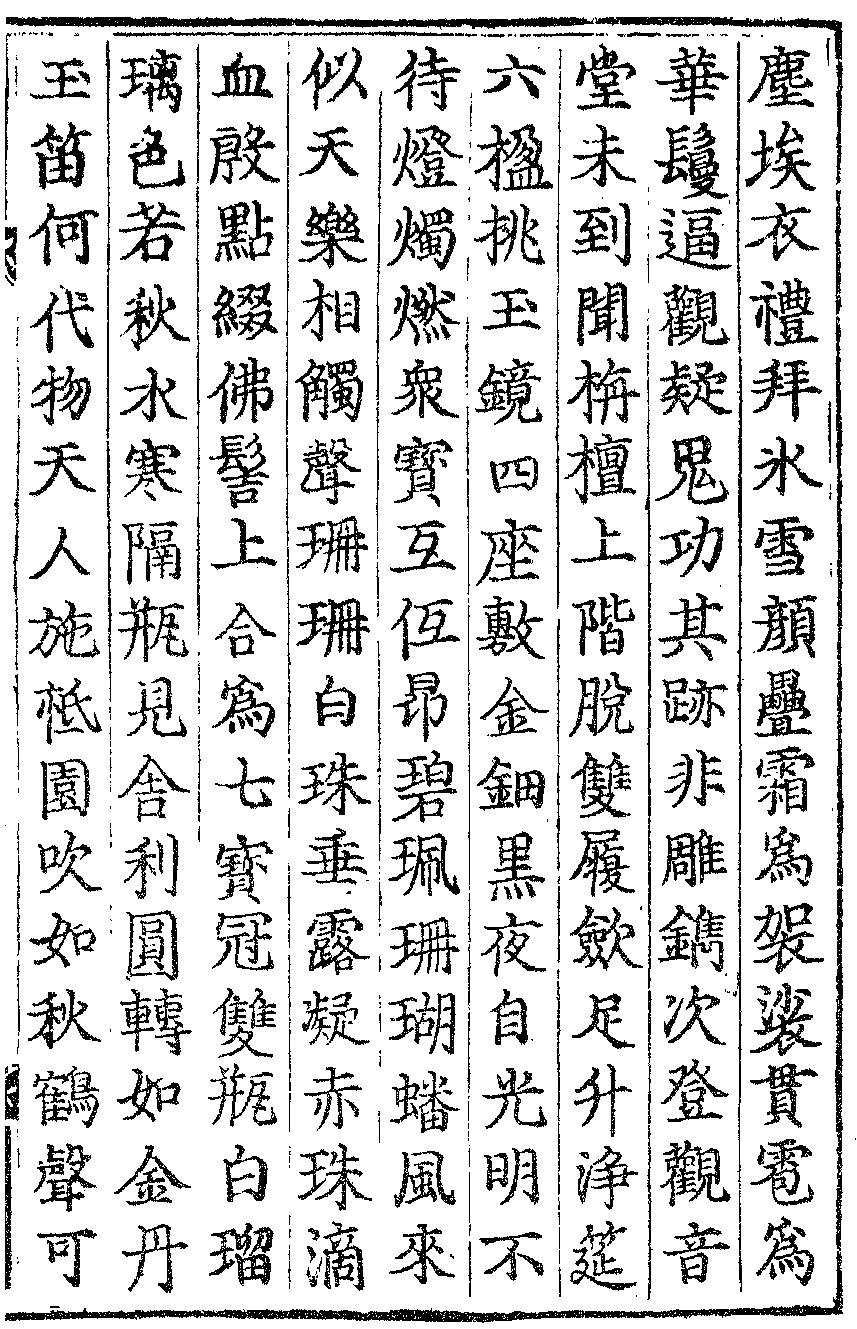 塵埃衣禮拜氷雪顏疊霜爲袈裟貫雹爲
華鬘逼觀疑鬼功其跡非雕鐫次登觀音
堂未到聞栴檀上階脫雙履歛足升浄筵
六楹挑玉鏡四座敷金鈿黒夜自光明不
待燈燭燃衆寶互低昻碧珮珊瑚蟠風來
似天樂相觸聲珊珊白珠垂露凝赤珠滴
血殷點綴佛髻上合爲七寶冠雙瓶白瑠
璃色若秋水寒隔瓶見舍利圓轉如金丹
玉笛何代物天人施祗園吹如秋鶴聲可